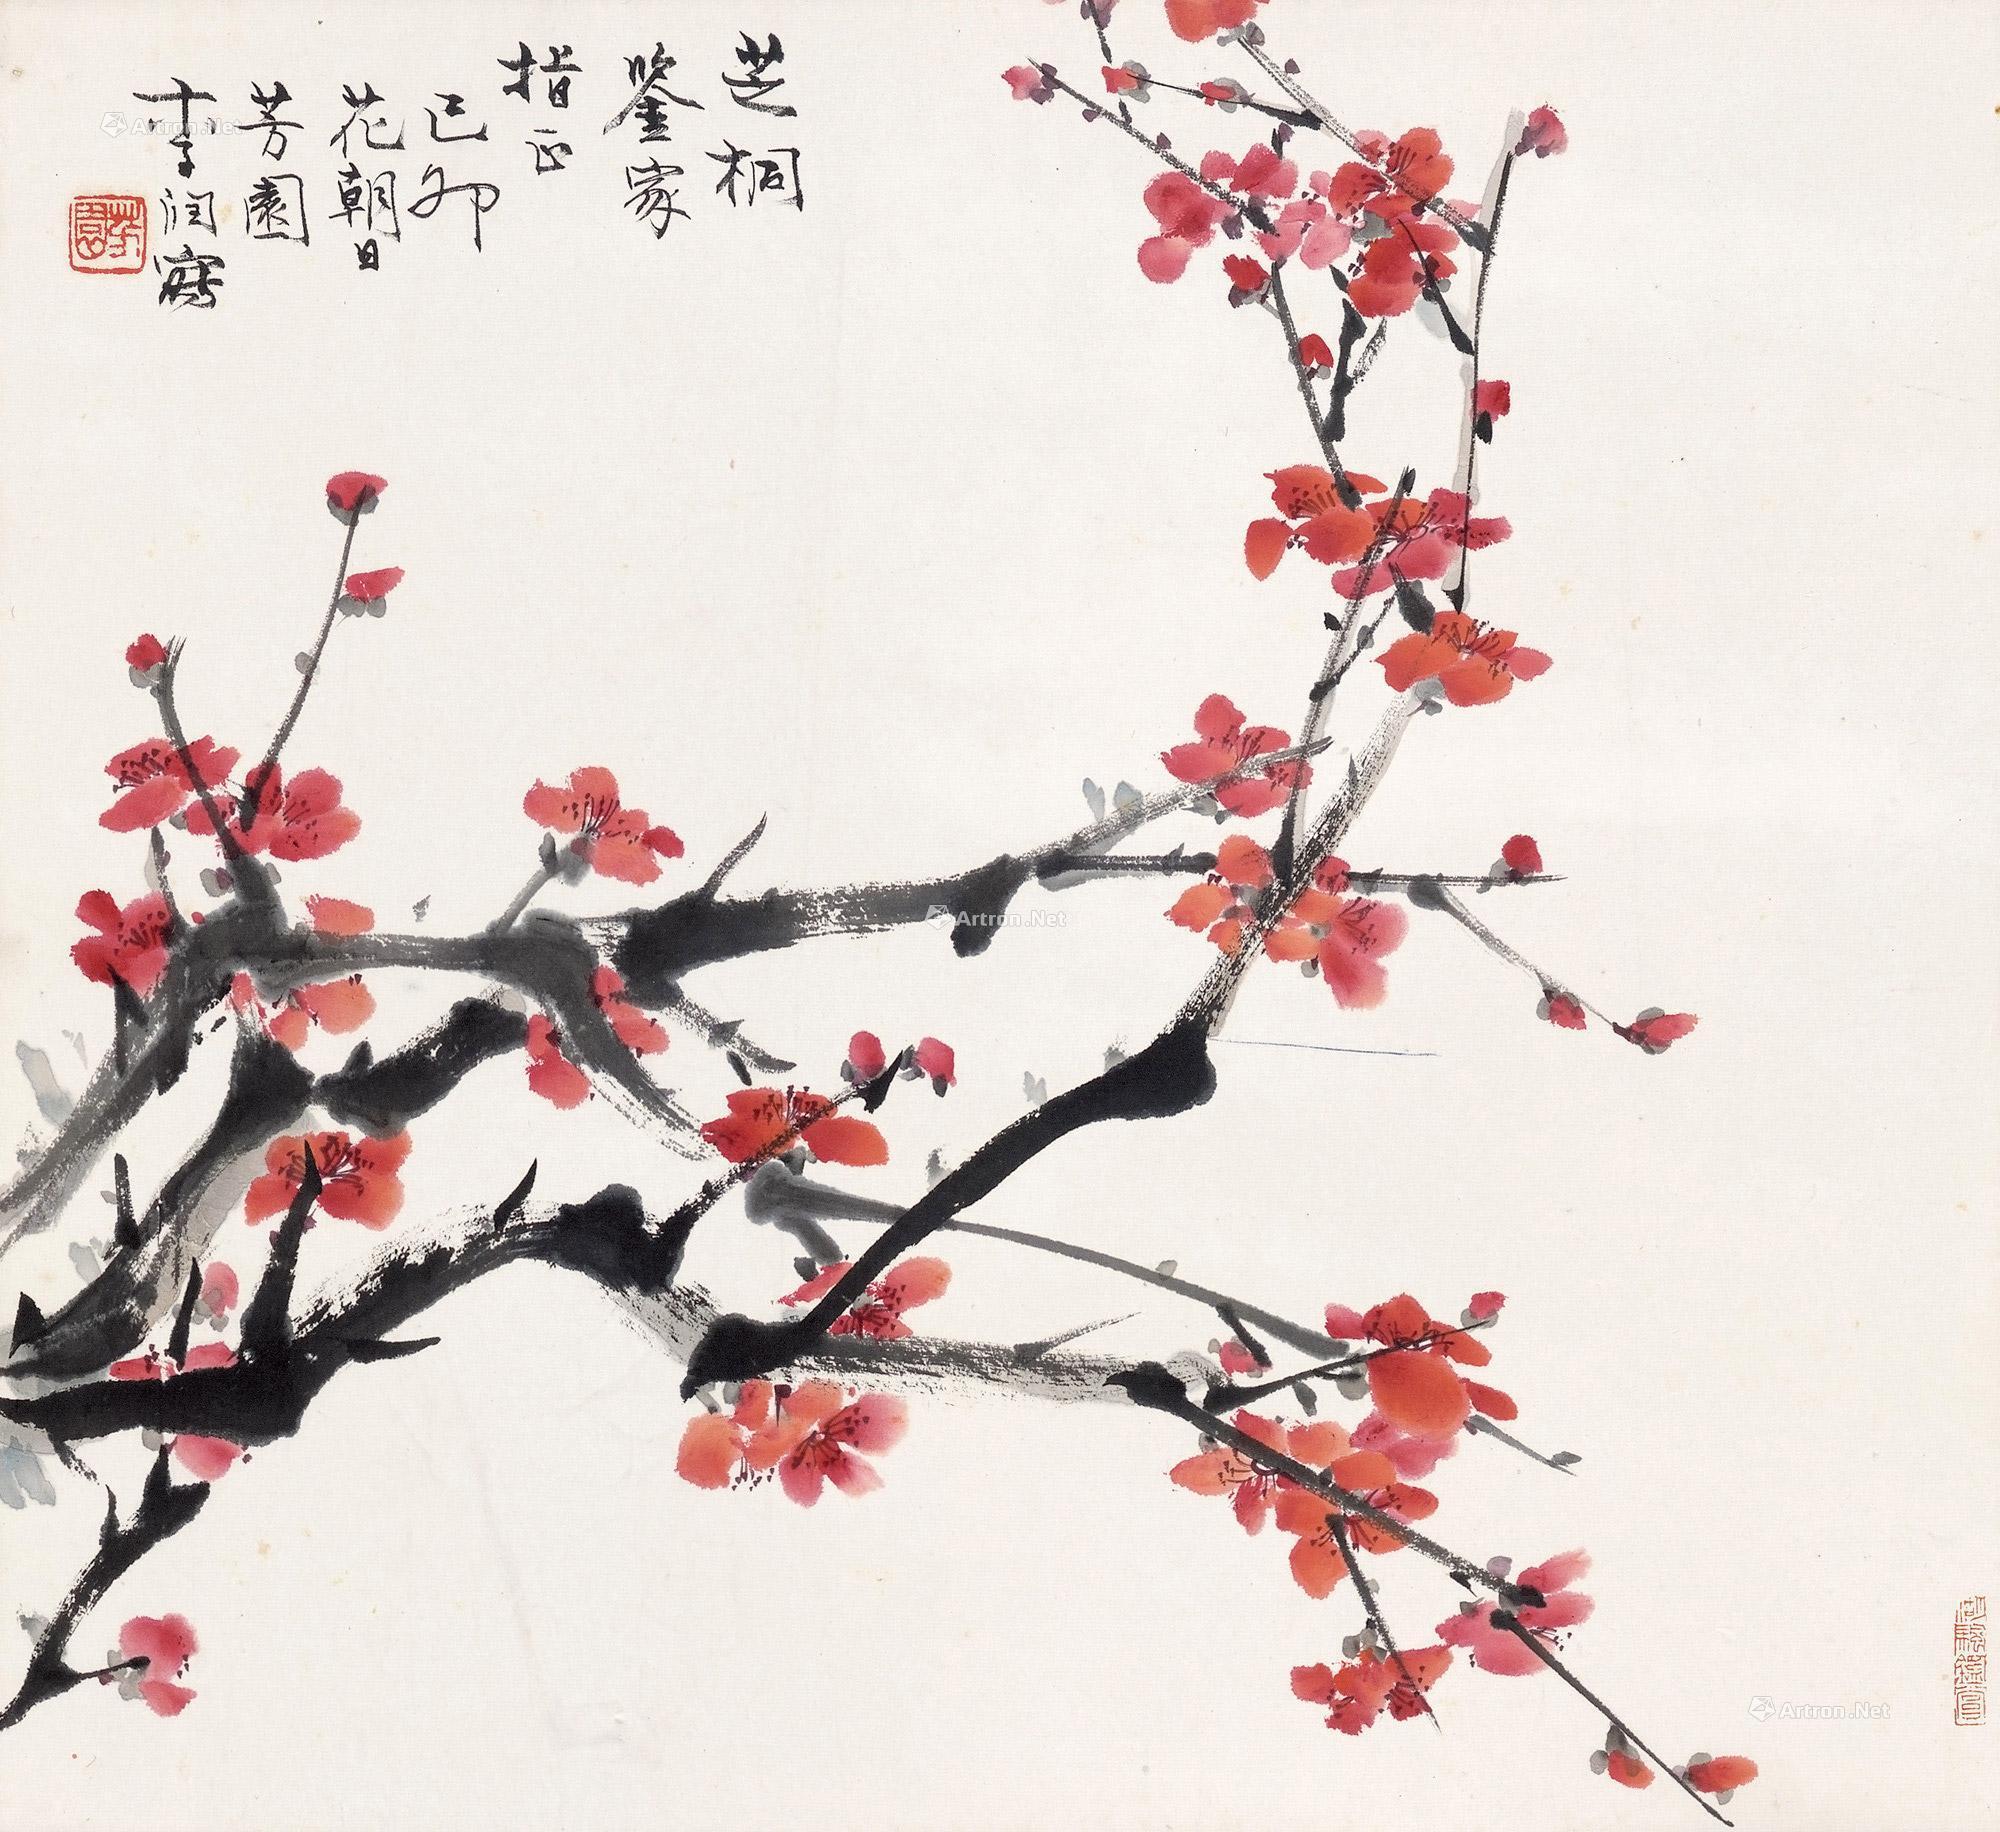 芝桐
鉴家
指正
己卯
花朝日
芳園
李润寫
芳園
Artron.Net
Artron.Net
Artron.Net